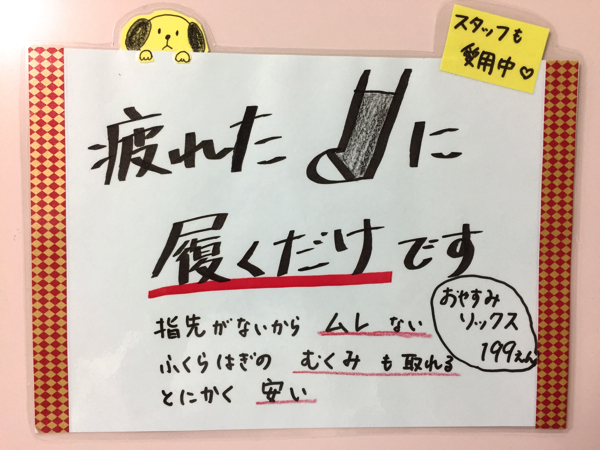 スタッフも
愛用中♡
疲れた に
履くだけです
指先がないから ムレ ない
ふくらはぎの むくみ も 取れる
とにかく 安い
おやすみ
ソックス
199えん